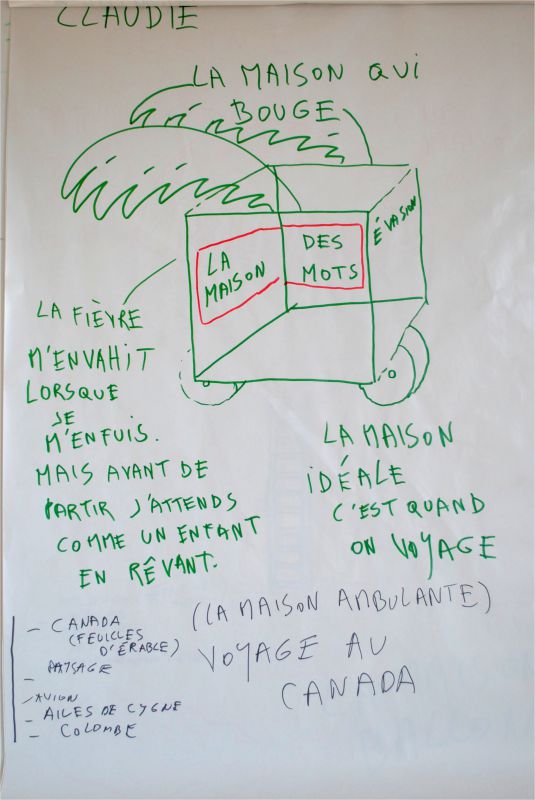 CLAUDIE
LA MAISON QUI
BOUGE
LA
MAISON
DES
MOTS
ÉVASION
LA FIÈVRE
M'ENVAHIT
LORSQUE
JE
M'ENFUIS.
MAIS AVANT DE
PARTIR J'ATTENDS
COMME UN ENFANT
EN RÊVANT.
LA MAISON
IDÉALE
C'EST QUAND
ON VOYAGE
(LA MAISON AMBULANTE)
VOYAGE AU
CANADA
– CANADA
(FEUILLES
D'ÉRABLE)
PAYSAGE
–
– AVION
– AILES DE CYGNE
– COLOMBE